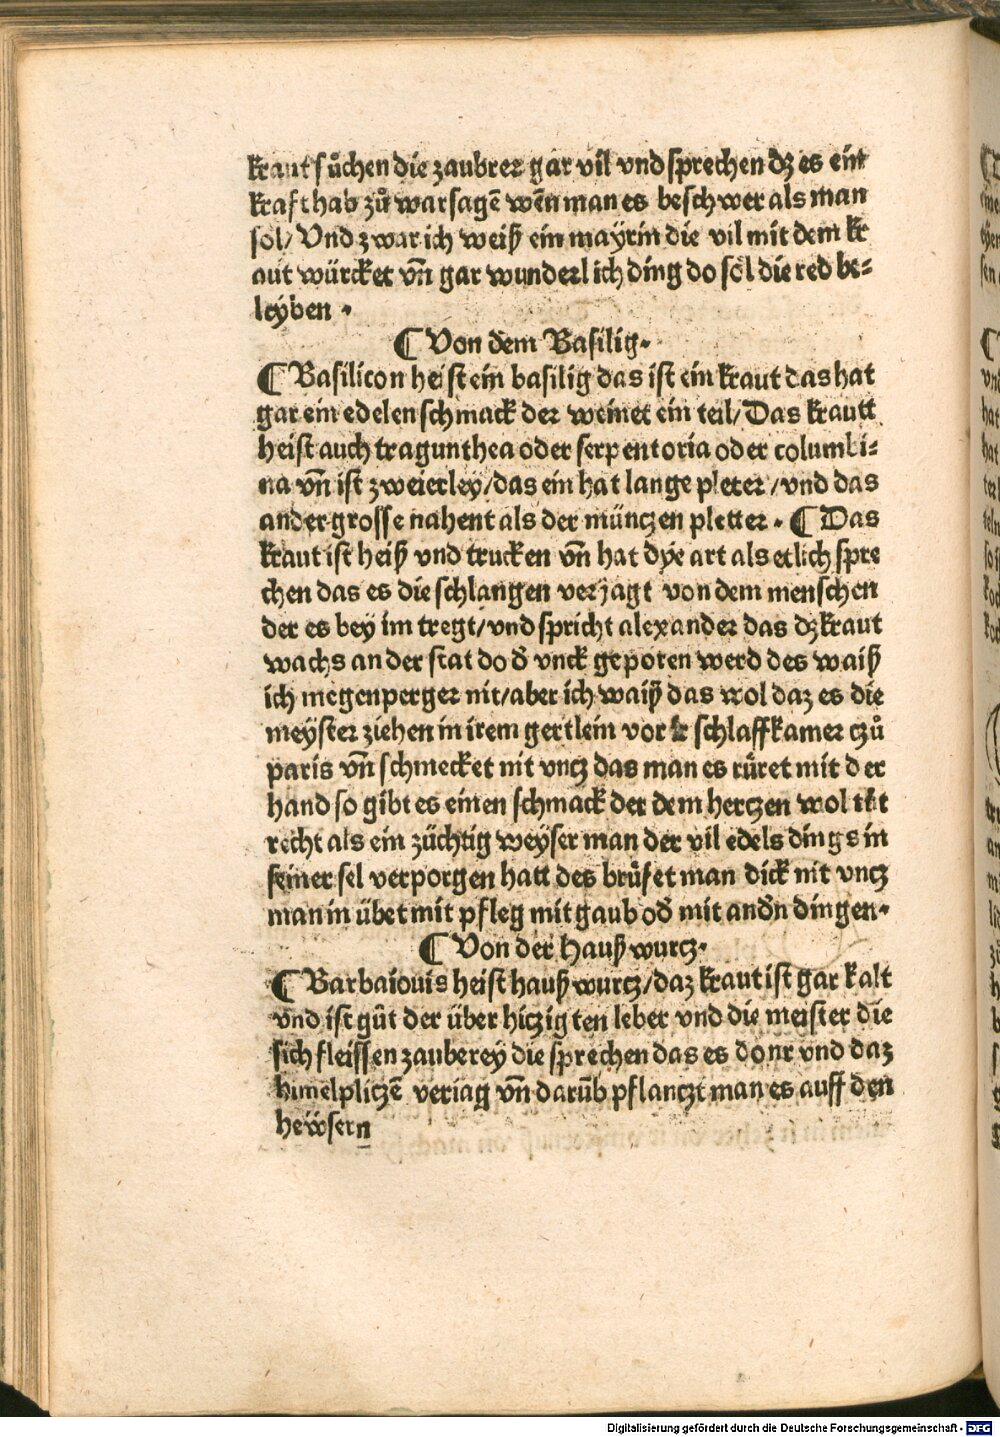 kraut sůchen die zaubrer gar vil vnd sprechen dz es ein
kraft hab zů warsagē wēn man es beschwer als man
sol/ Vnd zwar ich weiß ein mayrin die vil mit dem kr
aut würcket vn̄ gar wunderlich ding do sol die red be⸗
leyben .
¶ Von dem Basilig.
¶ Basilicon heist ein basilig das ist ein kraut das hat
gar ein edelen schmack der weinet ein teil/ Das krautt
heist auch tragunthea oder serpentoria oder columbi⸗
na vn̄ ist zweierley/ das ein hat lange pleter/ vnd das
ander grosse nahent als der müntzen pletter. ¶ Das
kraut ist heiß vnd trucken vn̄ hat dye art als etlich spre
chen das es die schlangen verjagt von dem menschen
der es bey im tregt/ vnd spricht alexander das dz kraut
wachs an der stat do d̄ vnck geporen werd des waiß
ich megenperger nit/ aber ich waiß das wol daz es die
meyster ziehen in irem gertlein vor schlaffkamer czů
paris vn̄ schmecket nit vncz das man es rüret mit der
hand so gibt es einen schmack der dem hertzen wol tůt
recht als ein züchtig weyser man der vil edels dings in
seiner sel verporgen hatt des brüfet man dick nit vncz
man in übet mit pfleg mit gaub od̄ mit and̄n dingen.
¶ Von der Hauß wurcz.
¶ Barbaiouis heist hauß wurcz/ daz kraut ist gar kalt
vnd ist gůt der über hiczigten leber vnd die meister die
sich fleissen zauberey die sprechen das es donr vnd daz
himelpliczē veriag vn̄ darūb pflanczt man es auff den
hewsern
Digitalisierung gefördert durch die Deutsche Forschungsgemeinschaft - DFG